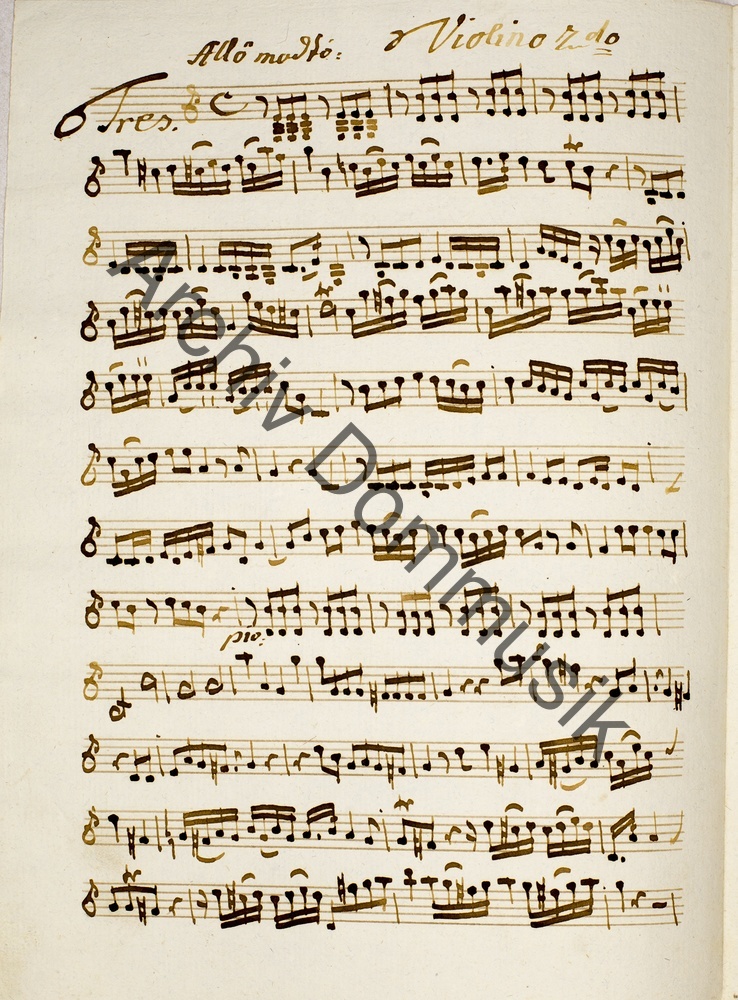 Allô modtó: Violino 2do
Tres.
pio:
et
Archiv Dommusik